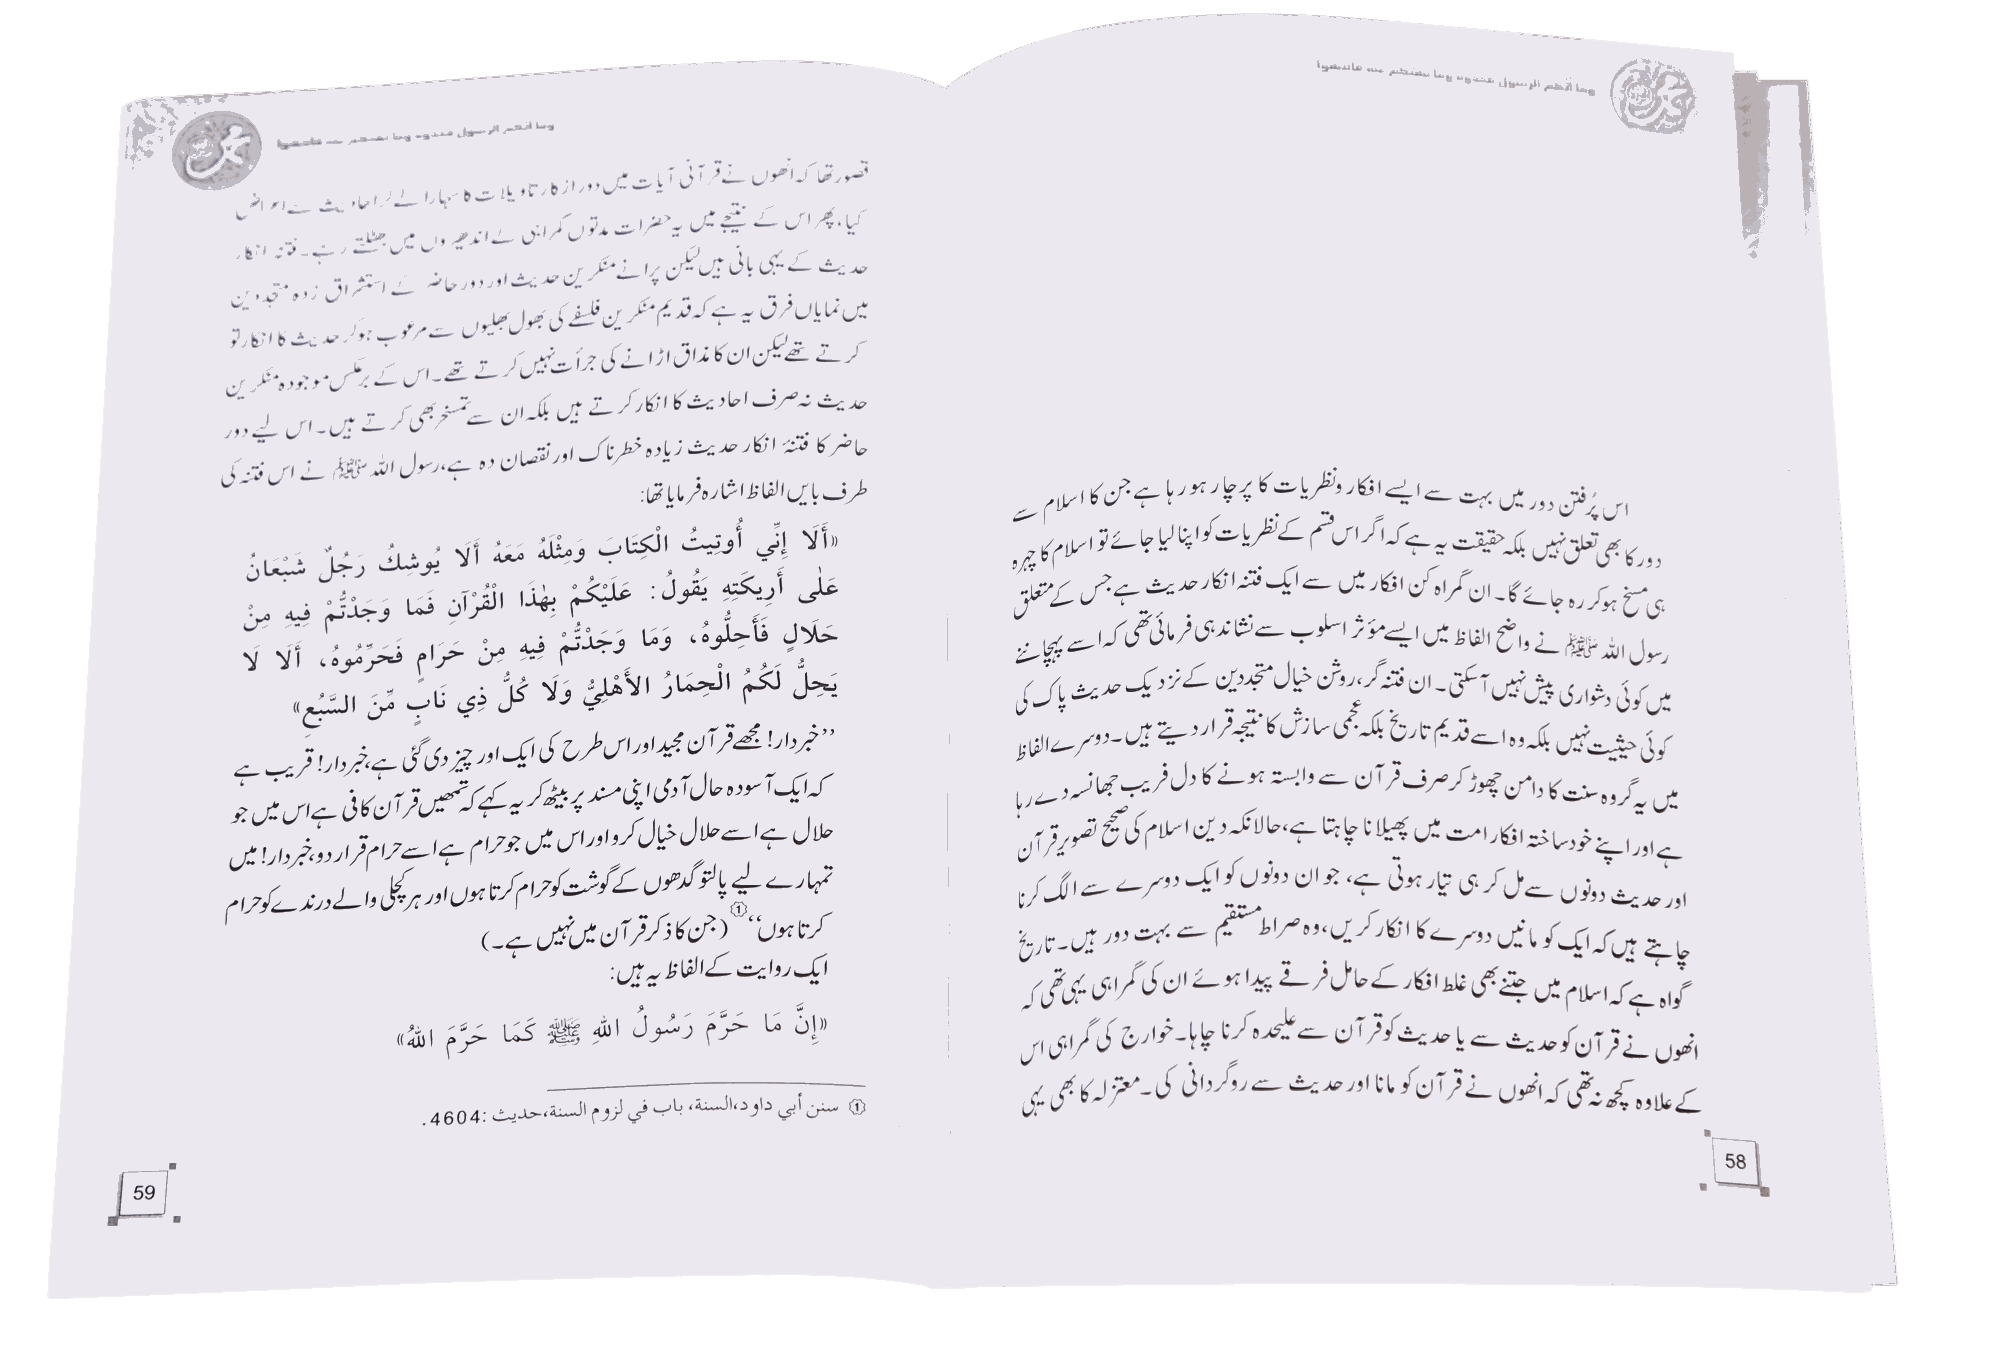 وما آتكم الرسول فخذوه وما نهىكم عنه فانتهوا
اس پُرفتن دور میں بہت سے ایسے افکار ونظریات کا پرچار ہو رہا ہے جن کا اسلام سے
دور کا بھی تعلق نہیں بلکہ حقیقت یہ ہے کہ اگر اس قسم کے نظریات کو اپنا لیا جائے تو اسلام کا چہرہ
ہی مسخ ہوکر رہ جائے گا۔ ان گمراہ کن افکار میں سے ایک فتنہ انکار حدیث ہے جس کے متعلق
رسول اللہ ﷺ نے واضح الفاظ میں ایسے مؤثر اسلوب سے نشاندہی فرمائی تھی کہ اسے پہچاننے
میں کوئی دشواری پیش نہیں آسکتی۔ ان فتنہ گر، روشن خیال متجددین کے نزدیک حدیث پاک کی
کوئی حیثیت نہیں بلکہ وہ اسے قدیم تاریخ بلکہ عجمی سازش کا نتیجہ قرار دیتے ہیں۔ دوسرے الفاظ
میں یہ گروہ سنت کا دامن چھوڑ کر صرف قرآن سے وابستہ ہونے کا دل فریب جھانسہ دے رہا
ہے اور اپنے خود ساختہ افکار امت میں پھیلانا چاہتا ہے، حالانکہ دین اسلام کی صحیح تصویر قرآن
اور حدیث دونوں سے مل کر ہی تیار ہوتی ہے، جو ان دونوں کو ایک دوسرے سے الگ کرنا
چاہتے ہیں کہ ایک کو مانیں دوسرے کا انکار کریں، وہ صراط مستقیم سے بہت دور ہیں۔ تاریخ
گواہ ہے کہ اسلام میں جتنے بھی غلط افکار کے حامل فرقے پیدا ہوئے ان کی گمراہی یہی تھی کہ
انھوں نے قرآن کو حدیث سے یا حدیث کو قرآن سے علیحدہ کرنا چاہا۔ خوارج کی گمراہی اس
کے علاوہ کچھ نہ تھی کہ انھوں نے قرآن کو مانا اور حدیث سے روگردانی کی۔ معتزلہ کا بھی یہی
58
وما آتكم الرسول فخذوه وما نهىكم عنه فانتهوا
قصور تھا کہ انھوں نے قرآنی آیات میں دور از کار تاویلات کا سہارا لے کر احادیث سے اعراض
کیا، پھر اس کے نتیجے میں یہ حضرات مدتوں گمراہی کے اندھیروں میں بھٹکتے رہے۔ فتنہ انکار
حدیث کے یہی بانی ہیں لیکن پرانے منکرین حدیث اور دور حاضر کے استشراق زدہ متجددین
میں نمایاں فرق یہ ہے کہ قدیم منکرین فلسفے کی بھول بھلیوں سے مرعوب ہوکر حدیث کا انکار تو
کرتے تھے لیکن ان کا مذاق اڑانے کی جرأت نہیں کرتے تھے۔ اس کے برعکس موجودہ منکرین
حدیث نہ صرف احادیث کا انکار کرتے ہیں بلکہ ان سے تمسخر بھی کرتے ہیں۔ اس لیے دور
حاضر کا فتنۂ انکار حدیث زیادہ خطرناک اور نقصان دہ ہے، رسول اللہ ﷺ نے اس فتنہ کی
طرف بایں الفاظ اشارہ فرمایا تھا:
«أَلَا إِنِّي أُوتِيتُ الْكِتَابَ وَمِثْلَهُ مَعَهُ أَلَا يُوشِكُ رَجُلٌ شَبْعَانُ
عَلٰى أَرِيكَتِهِ يَقُولُ: عَلَيْكُمْ بِهٰذَا الْقُرْآنِ فَمَا وَجَدْتُّمْ فِيهِ مِنْ
حَلَالٍ فَأَحِلُّوهُ، وَمَا وَجَدْتُّمْ فِيهِ مِنْ حَرَامٍ فَحَرِّمُوهُ، أَلَا لَا
يَحِلُّ لَكُمُ الْحِمَارُ الأَهْلِيُّ وَلَا كُلُّ ذِي نَابٍ مِّنَ السَّبُعِ»
’’خبردار! مجھے قرآن مجید اور اس طرح کی ایک اور چیز دی گئی ہے، خبردار! قریب ہے
کہ ایک آسودہ حال آدمی اپنی مسند پر بیٹھ کر یہ کہے کہ تمھیں قرآن کافی ہے اس میں جو
حلال ہے اسے حلال خیال کرو اور اس میں جو حرام ہے اسے حرام قرار دو، خبردار! میں
تمہارے لیے پالتو گدھوں کے گوشت کو حرام کرتا ہوں اور ہر کچلی والے درندے کو حرام
کرتا ہوں‘‘① (جن کا ذکر قرآن میں نہیں ہے۔)
ایک روایت کے الفاظ یہ ہیں:
«إِنَّ مَا حَرَّمَ رَسُولُ اللهِ ﷺ كَمَا حَرَّمَ اللهُ»
① سنن أبي داود، السنة، باب في لزوم السنة، حديث: 4604.
59